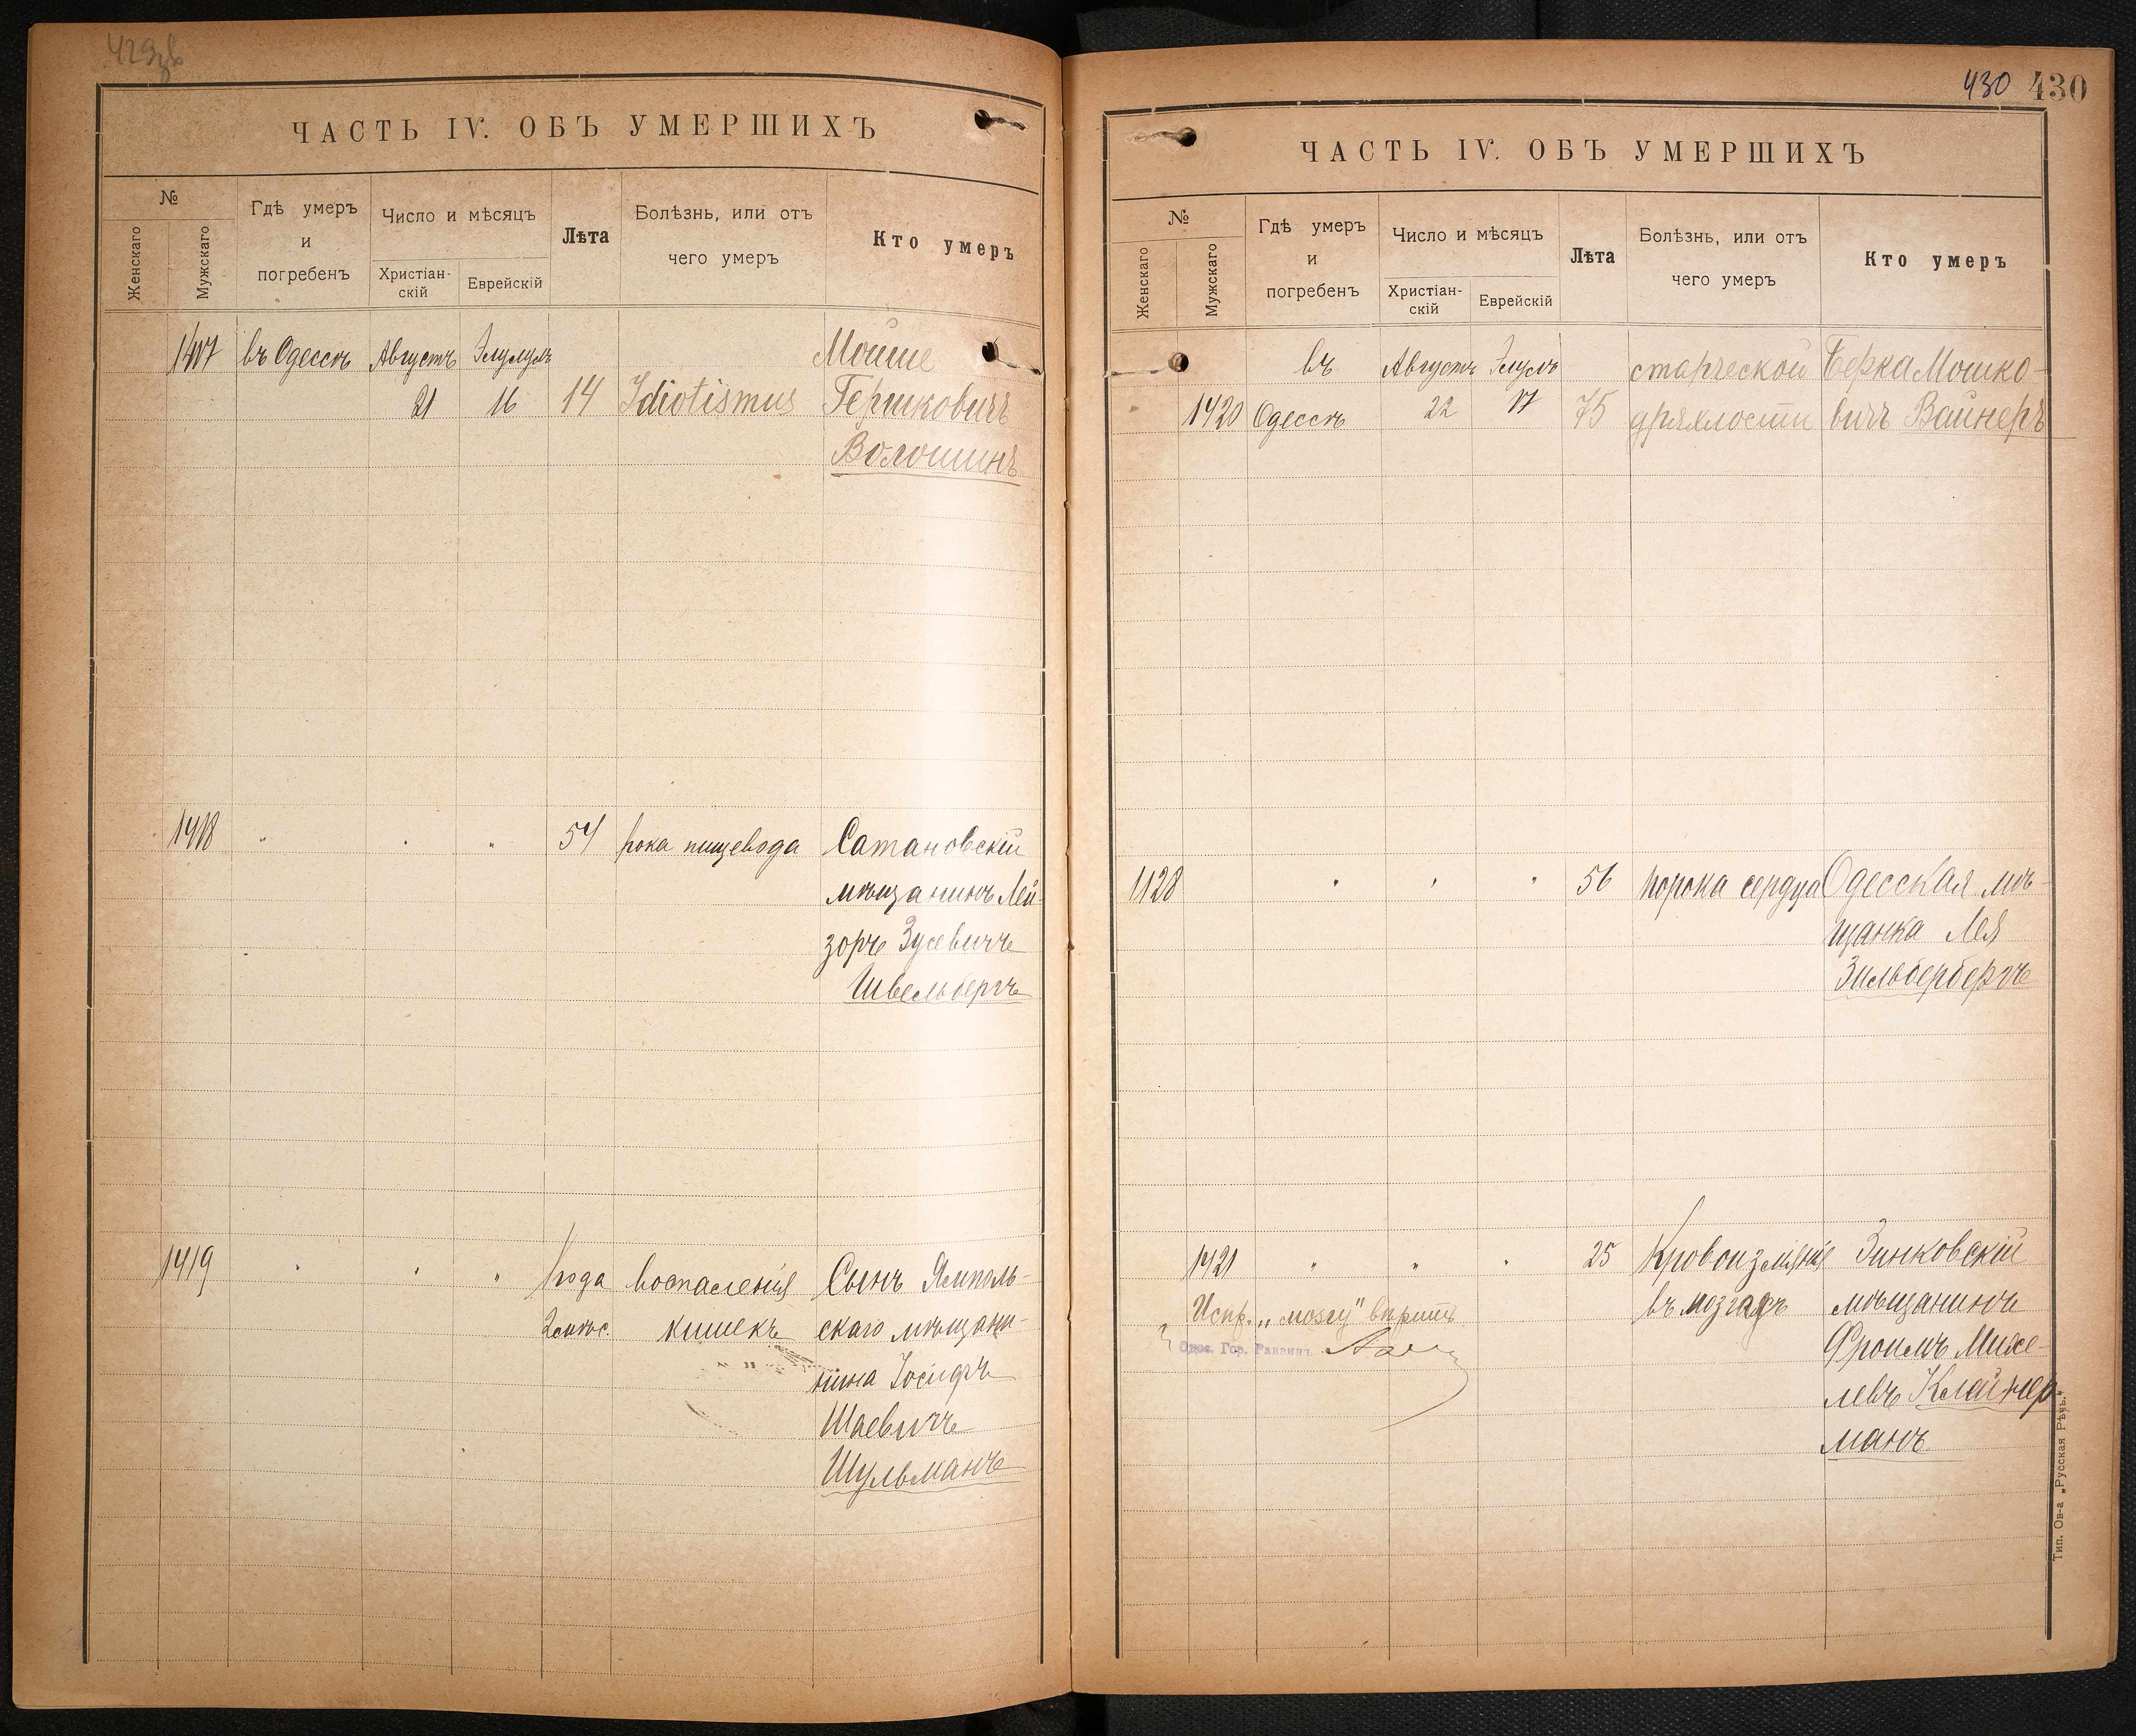 429об
ЧАСТЬ IV. ОБЪ УМЕРШИХЪ
№
Женскаго
Мужскаго
Гдѣ умеръ
и
погребенъ
Число и мѣсяцъ
Христіан-
скій
Еврейскій
Лѣта
Болѣзнь, или отъ
чего умеръ
Кто умеръ
1417 въ Одессѣ Августъ Элулъ Мойше
21 16 14 Idiotismus Гершковичъ
Волошинъ
1418 " " " 54 рака пищевода Сатановскій
мѣщанинъ Лей-
зоръ Зусевичъ
Швельбергъ
1419 " " " года воспаленія Сынъ Ямполь-
2 мѣс. кишекъ скаго мѣщани-
нина Іосифъ
Шаевичъ
Шульманъ
430 430
ЧАСТЬ IV. ОБЪ УМЕРШИХЪ
№
Женскаго
Мужскаго
Гдѣ умеръ
и
погребенъ
Число и мѣсяцъ
Христіан-
скій
Еврейскій
Лѣта
Болѣзнь, или отъ
чего умеръ
Кто умеръ
въ Августъ Элулъ старческой Берка Мошко-
1420 Одессѣ 22 17 75 дряхлости вичъ Вайнеръ
1128 " " " 56 порока сердца Одесская мѣ-
щанка Лея
Зильбербергъ
1421 " " " 25 Кровоизліяніе Зинковскій
въ мозгъ мѣщанинъ
Испр. „мозгу" вѣрить
Одес. Гор. Раввинъ
Фроимъ Михе-
левъ Клайнер
манъ
Тип. Ов-а „Русская Рѣчь."